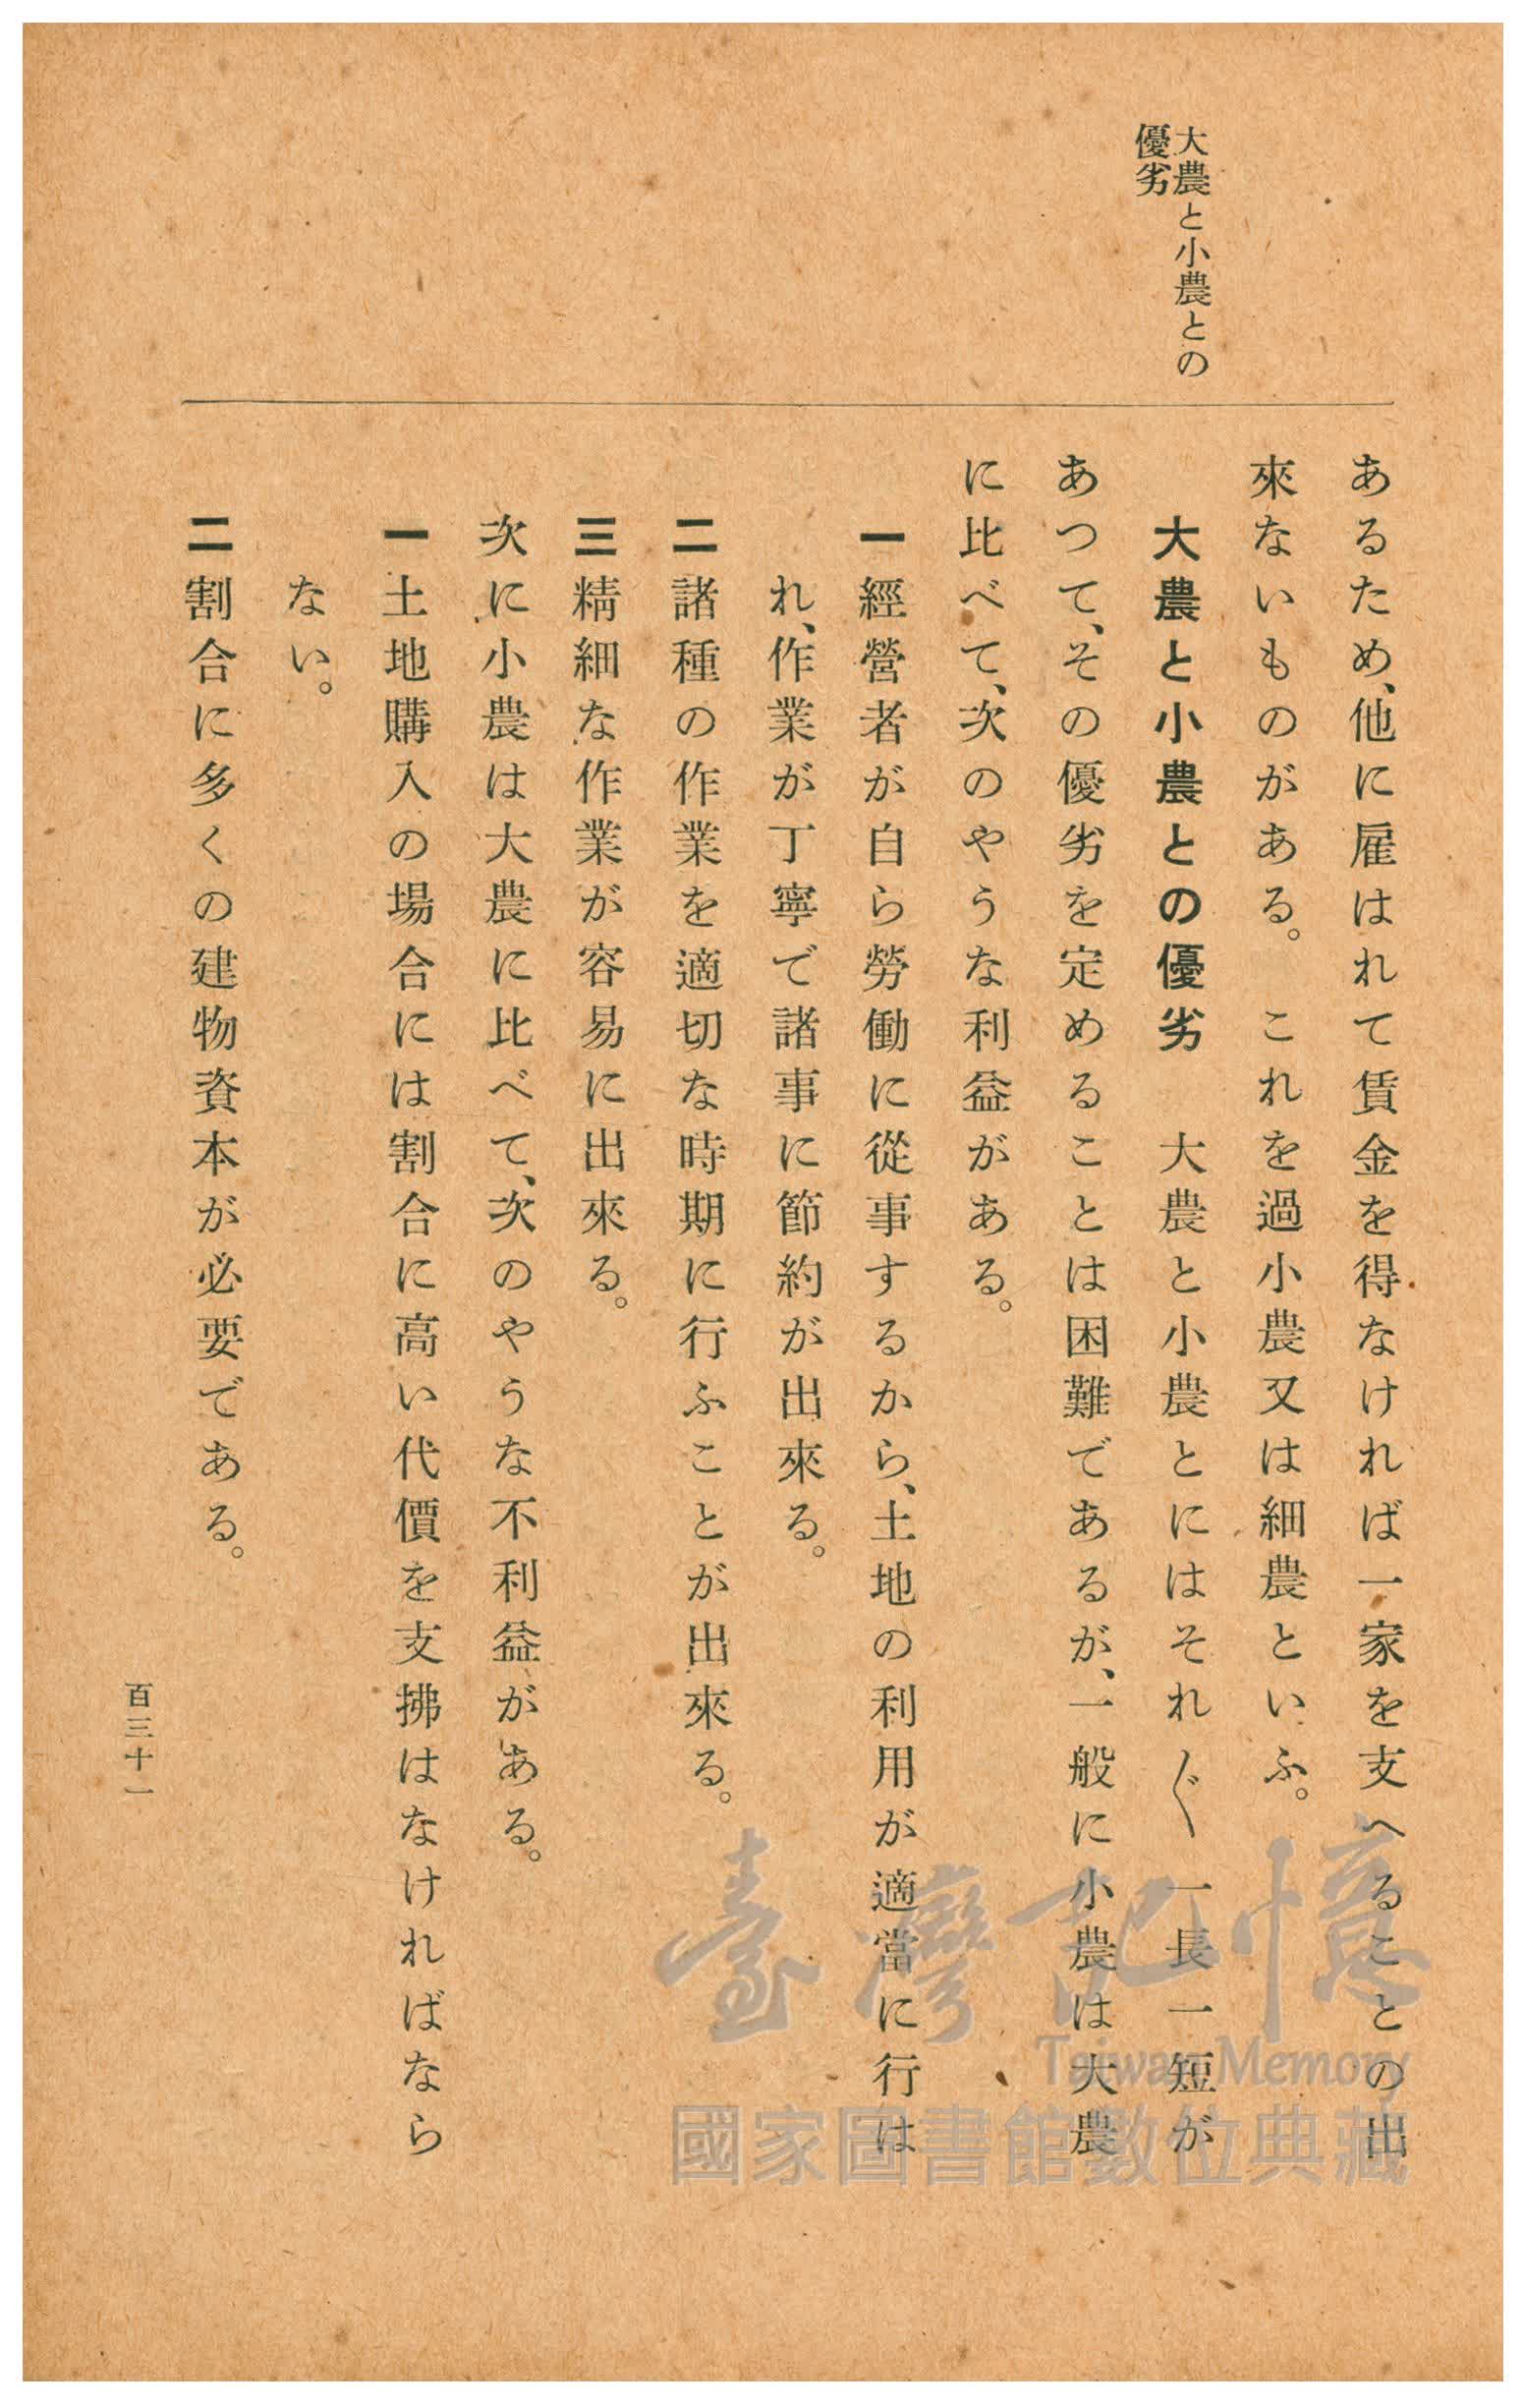 大農と小農との
優劣
あるため、他に雇はれて賃金を得なければ一家を支へることの出
來ないものがある。　これを過小農又は細農といふ。
大農と小農との優劣　大農と小農とにはそれ〴〵一長一短が
あつて、その優劣を定めることは困難であるが、一般に小農は大農
に比べて、次のやうな利益がある。
一 經營者が自ら勞働に從事するから、土地の利用が適當に行は
れ、作業が丁寧で諸事に節約が出來る。
二 諸種の作業を適切な時期に行ふことが出來る。
三 精細な作業が容易に出來る。
次に小農は大農に比べて、次のやうな不利益がある。
一 土地購入の場合には割合に高い代價を支拂はなければなら
ない。
二 割合に多くの建物資本が必要である。
百三十一
臺灣記憶
Taiwan Memory
國家圖書館數位典藏